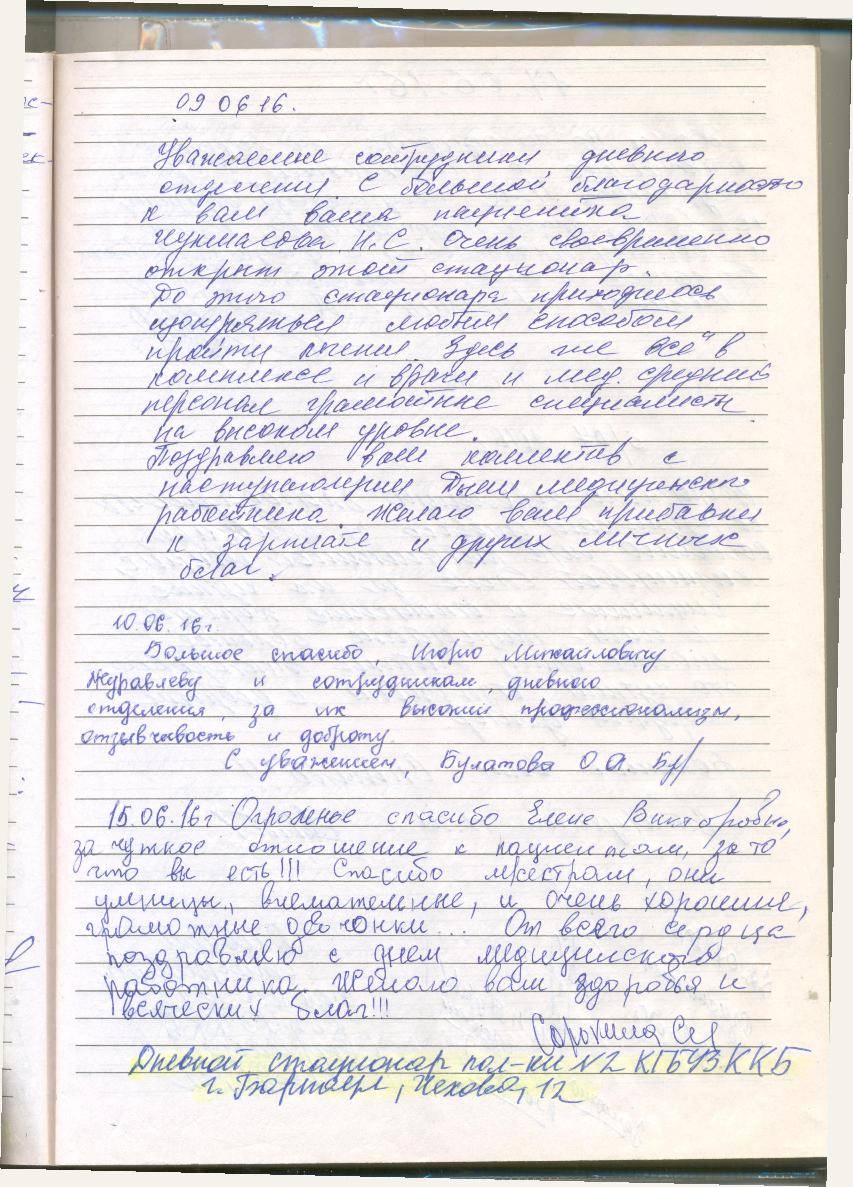 09 06 16.
Уважаемые сотрудники дневного
отделения. С большой благодарностью
к вам ваша пациентка
Н.С. Очень своевременно
открыт этот стационар.
До этого стационара приходилось
изощряться любым способом
пройти лечения. Здесь же "всё" в
комплексе и врачи и мед. средний
персонал грамотные специалисты
на высоком уровне.
Поздравляю ваш коллектив с
наступающим Днём медицинского
работника. Желаю вам прибавки
к зарплате и других личных
благ.
10.06.16г.
Большое спасибо, Игорю Михайловичу
Журавлеву и сотрудникам, дневного
отделения, за их высокий профессионализм,
отзывчивость и доброту.
С уважением, Булатова О.А.
15.06.16г Огромное спасибо Елене Викторовне,
за чуткое отношение к пациентам, за то
что вы есть!!! Спасибо м/сестрам, они
умницы, внимательные, и очень хорошие,
грамотные девчонки... От всего сердца
поздравляю с днем медицинского
работника. Желаю вам здоровья и
всяческих благ!!!
Сорокина
Дневной стационар пол-ки N2 КГБУЗ ККБ
г. Барнаул, Чехова, 12